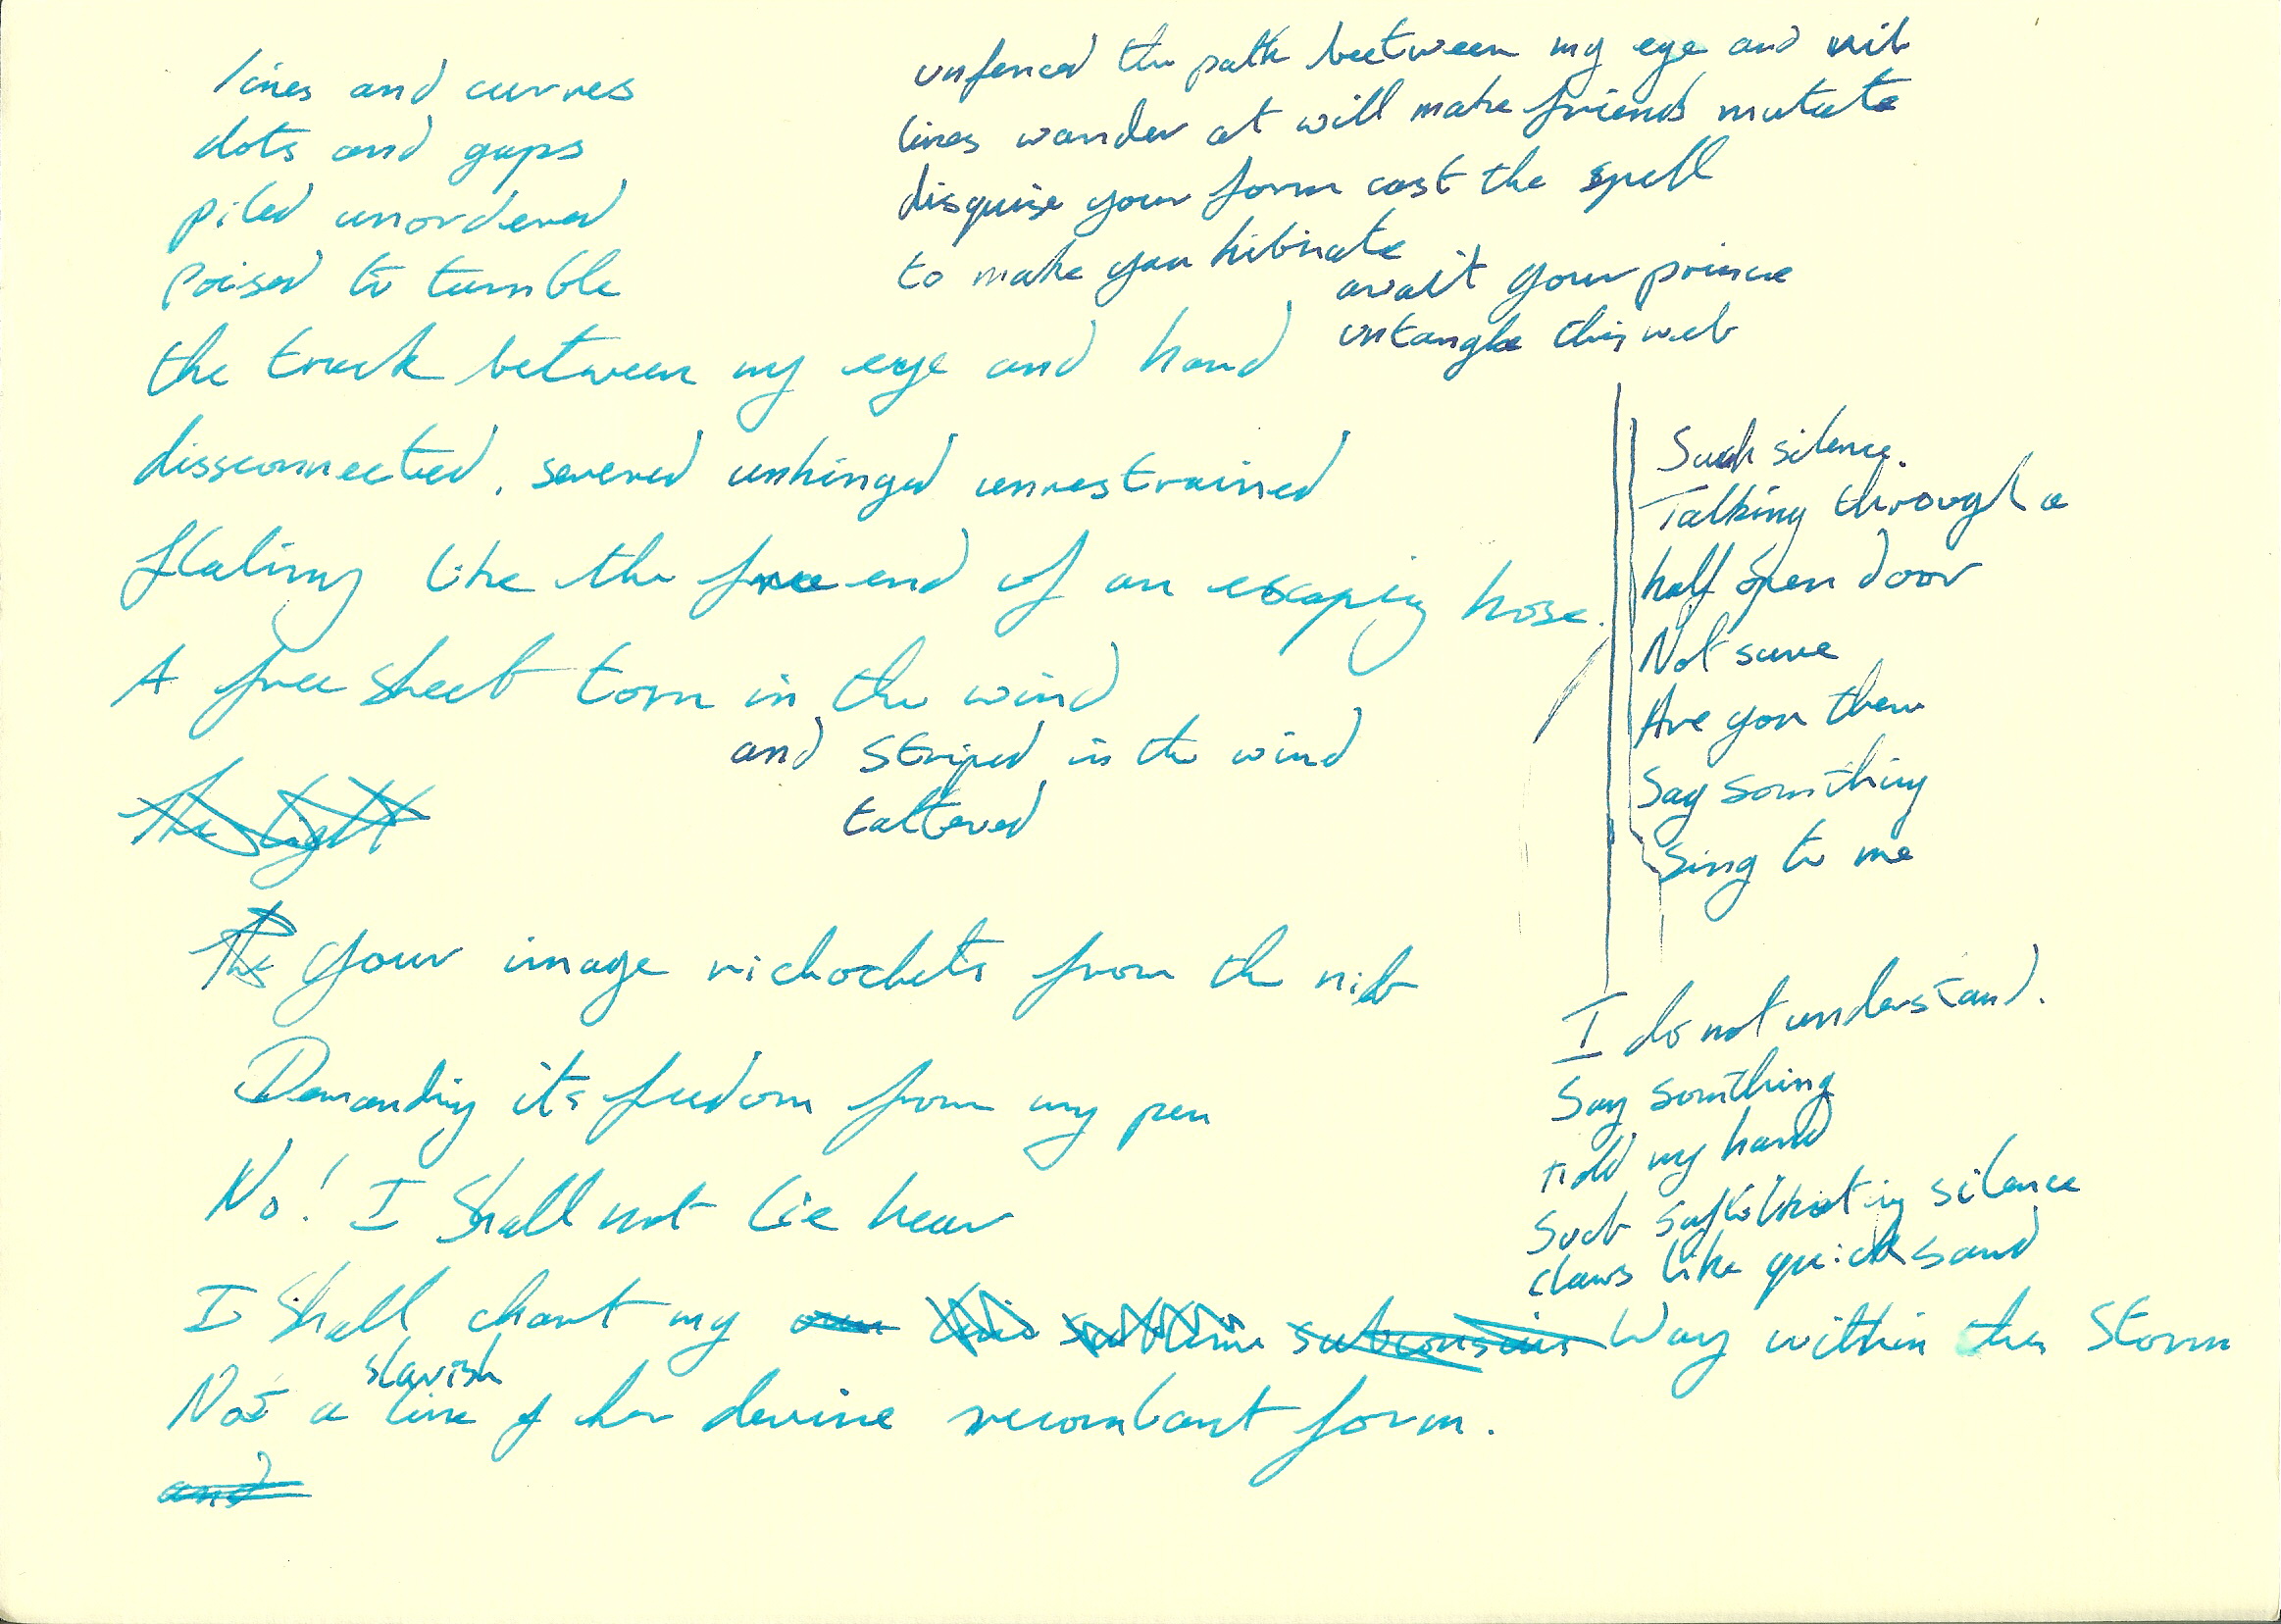 lines and curves
dots and gaps
piled unordered
poised to tumble
the track between my eye and hand
dissconnected, severed unhinged unrestrained
flaling like the free end of an escaping hose.
A free sheet torn in the wind
and striped in the wind
tattered
The light
The your image richochets from the nib
Demanding its freedom from my pen
No! I Shall not lie hear
I Shall chant my own subconscious Way within the Storm
slavish
Not a line of her devine recombant form.
and
unfenced the path beetween my eye and nib
lines wander at will make friends mutate
disguise your form cast the spell
to make you hibnate
await your prince
untangle this web
Such silence.
Talking through a
half open door
Not sure
Are you there
Say somthing
Sing to me
I do not understand.
Say somthing
Hold my hand
Such silence
claws like quick sand